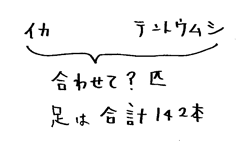 イカ テントウムシ
合わせて?匹
足は合計142本